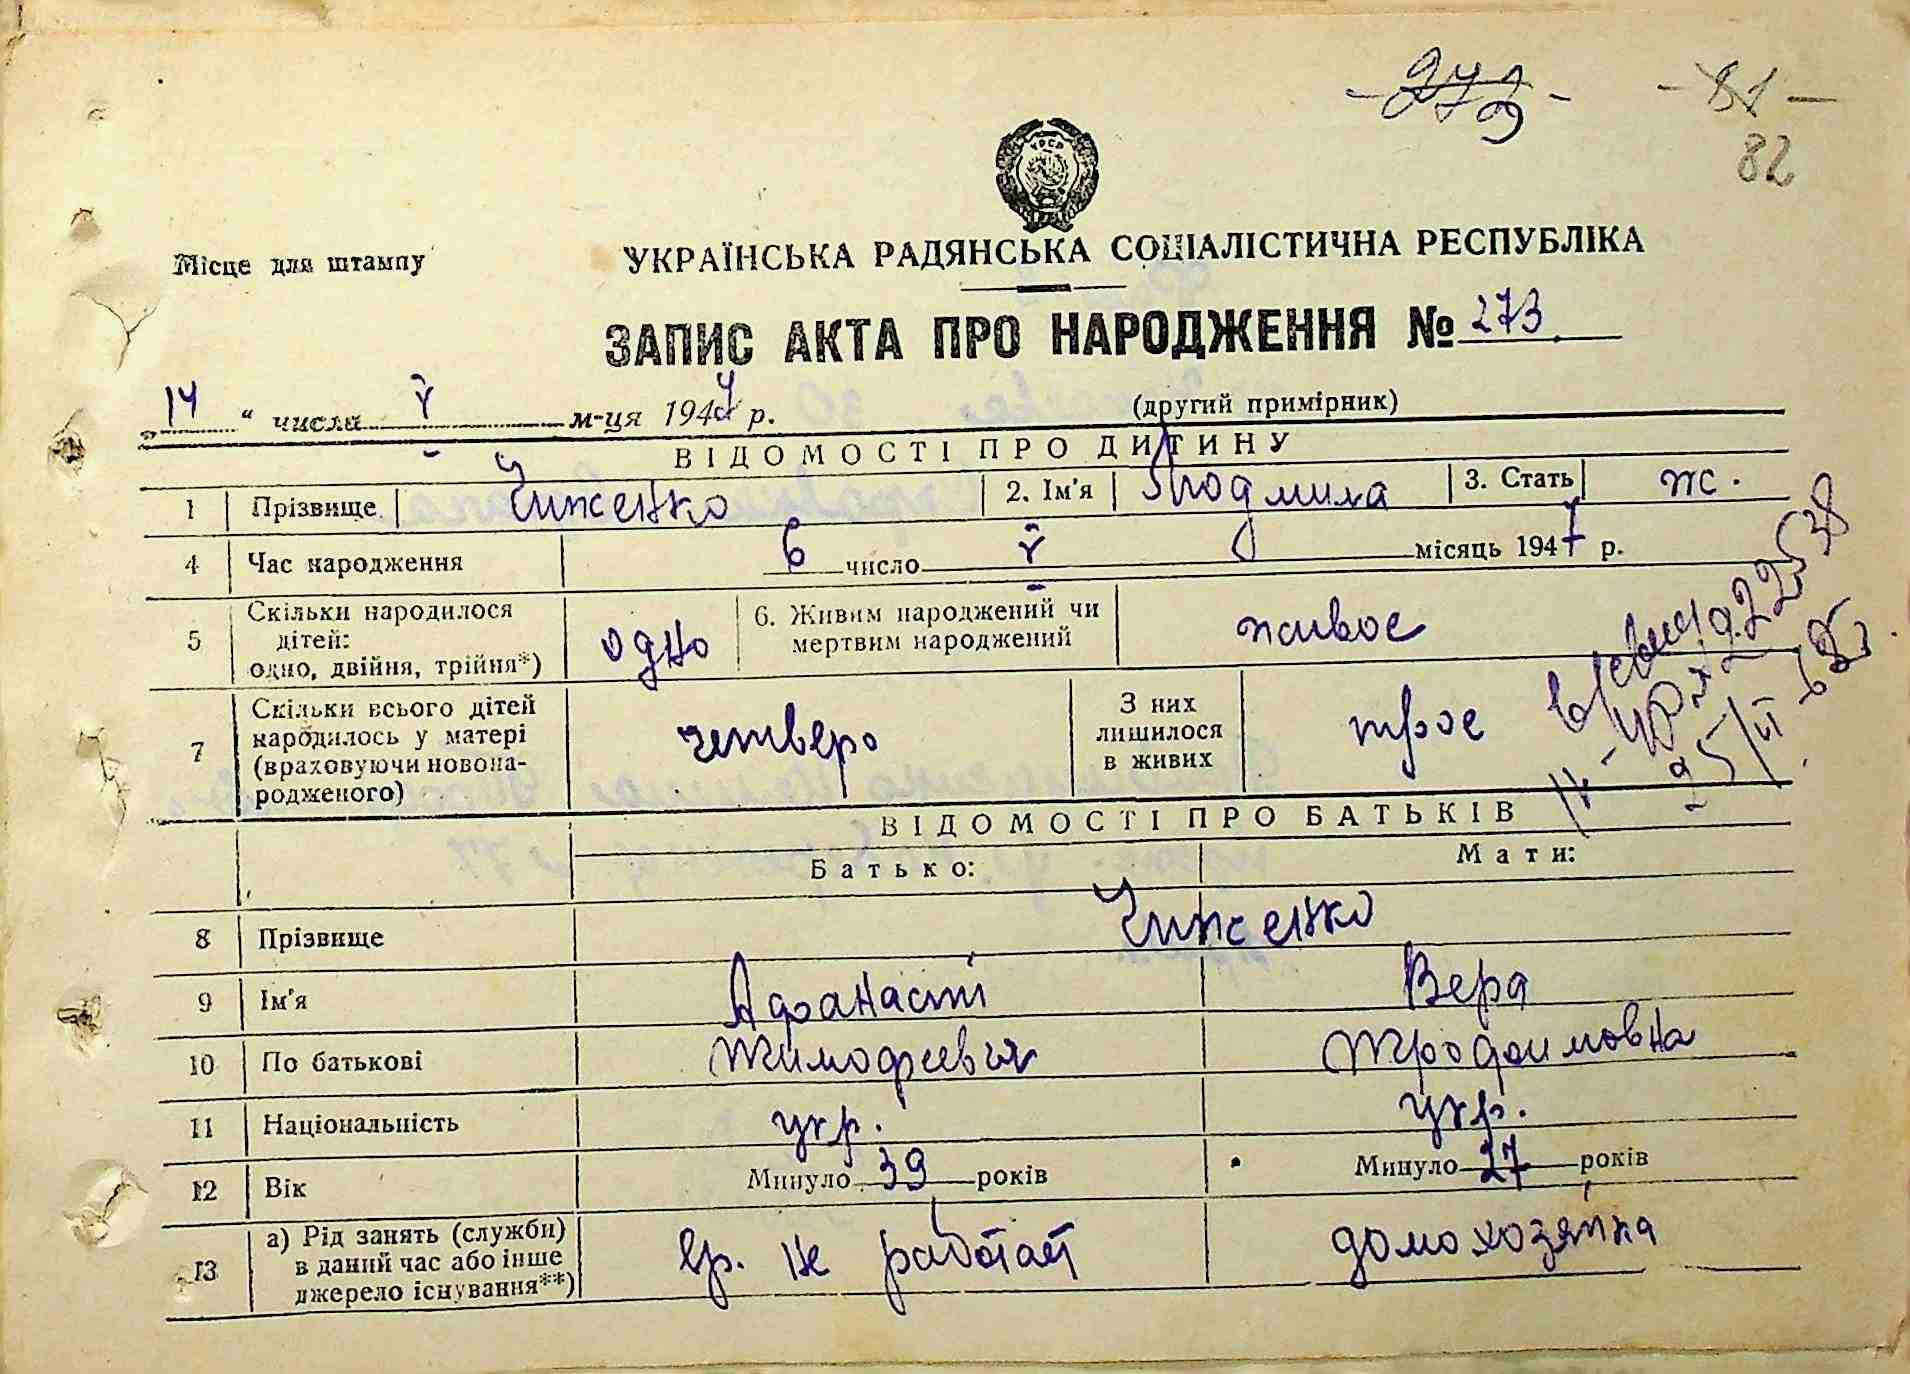 - 273 - - 81 -
82
УРСР
Місце для штампу
УКРАЇНСЬКА РАДЯНСЬКА СОЦІАЛІСТИЧНА РЕСПУБЛІКА
ЗАПИС АКТА ПРО НАРОДЖЕННЯ № 273
„14“ числа V м-ця 1947 р. (другий примірник)
ВІДОМОСТІ ПРО ДИТИНУ
1 Прізвище Чиженко 2. Ім'я Людмила 3. Стать ж.
4 Час народження 6 число V місяць 1947 р.
5 Скільки народилося
дітей:
одно, двійня, трійня*) одно 6. Живим народжений чи
мертвим народжений живое
7 Скільки всього дітей
народилось у матері
(враховуючи новона-
родженого) четверо З них
лишилося
в живих трое
ВІДОМОСТІ ПРО БАТЬКІВ
Батько: Мати:
8 Прізвище Чиженко
9 Ім'я Афанасий Вера
10 По батькові Тимофеевич Трофимовна
11 Національність укр. укр.
12 Вік Минуло 39 років Минуло 27 років
13 а) Рід занять (служби)
в даний час або інше
джерело існування**) вр. не работает домохозяйка